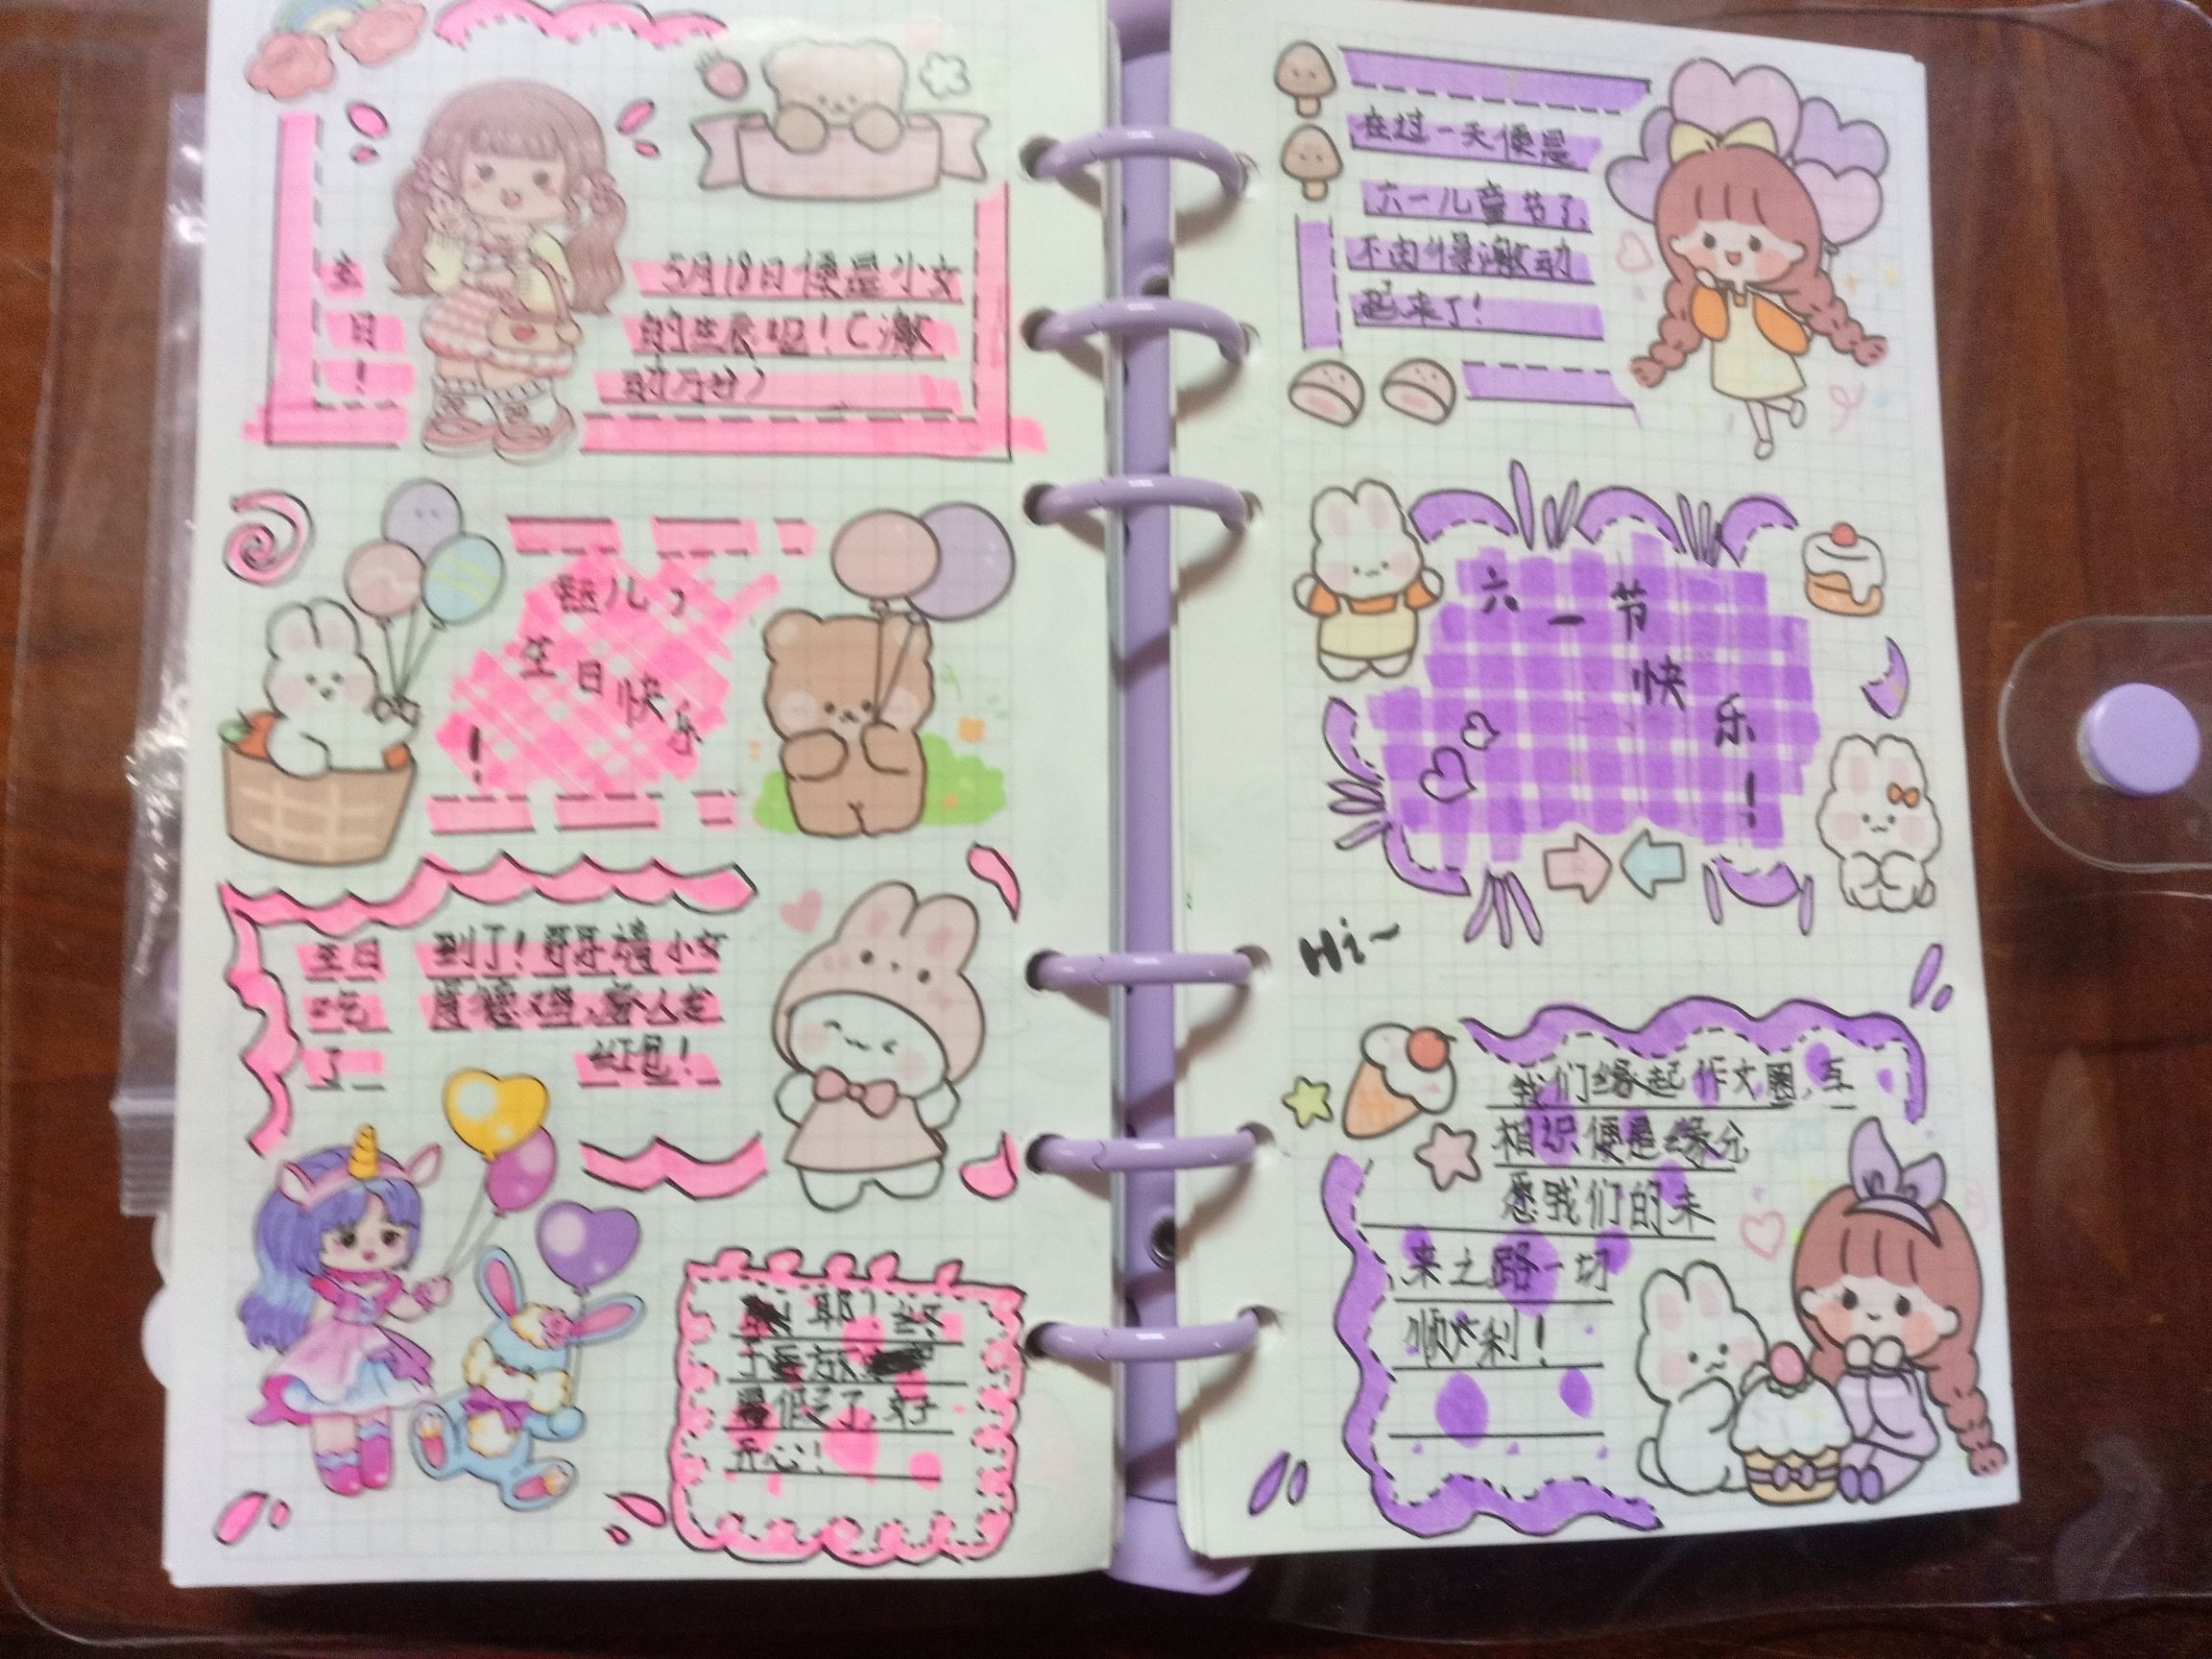 生
日
！
5月18日便是小女
的生辰啦！（激
动万分）
甜儿，
生日快乐
！
生日
吃
了
到了！哥哥请小女
红包！
耶！终
于要放
暑假了，好
开心！
在过一天便是
六一儿童节了，
不由得激动
起来了！
六一节
快
乐
！
Hi~
我们缘起作文圈，互
相识便是缘分
愿我们的未
来之路一切
顺利！